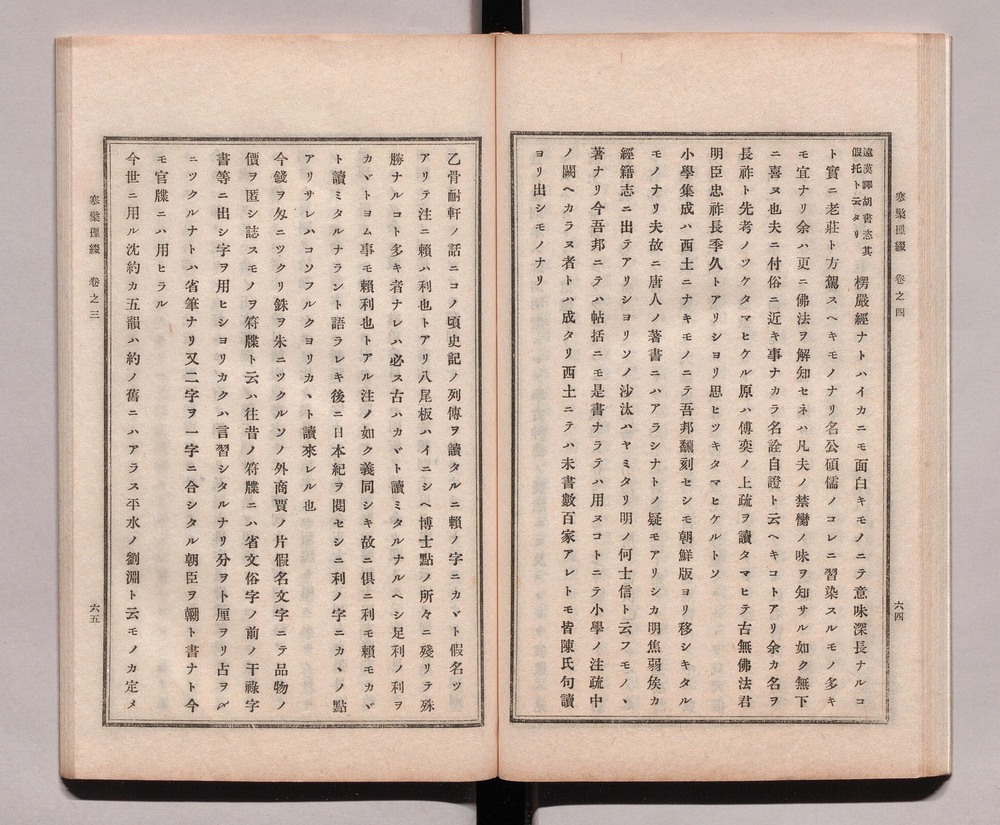 寒檠璅綴　卷之四
六四
遠漢譯胡書恣其
假托ト云タリ
楞嚴經ナトハイカニモ面白キモノニテ意味深長ナルコ
ト實ニ老莊ト方駕スヘキモノナリ名公碩儒ノコレニ習染スルモノ多キ
モ宜ナリ余ハ更ニ佛法ヲ解知セネハ凡夫ノ禁臠ノ味ヲ知サル如ク無下
ニ喜ヌ也夫ニ付俗ニ近キ事ナカラ名詮自證ト云ヘキコトアリ余カ名ヲ
長祚ト先考ノツケタマヒケル原ハ傅奕ノ上疏ヲ讀タマヒテ古無佛法君
明臣忠祚長季久トアリショリ思ヒツキタマヒケルトソ
小學集成ハ西土ニナキモノニテ吾邦飜刻セシモ朝鮮版ヨリ移シキタル
モノナリ夫故ニ唐人ノ著書ニハアラシナトノ疑モアリシカ明焦弱侯カ
經籍志ニ出テアリショリソノ沙汰ハヤミタリ明ノ何士信ト云フモノヽ
著ナリ今吾邦ニテハ帖括ニモ是書ナラテハ用ヌコトニテ小學ノ注疏中
ノ闕ヘカラヌ者トハ成タリ西土ニテハ末書數百家アレトモ皆陳氏句讀
ヨリ出シモノナリ
乙骨耐軒ノ話ニコノ頃史記ノ列傳ヲ讀タルニ賴ノ字ニカヾト假名ツ
アリテ注ニ賴ハ利也トアリ八尾板ハイニシヘ博士點ノ所々ニ殘リテ殊
勝ナルコト多キ者ナレハ必ス古ハカヾト讀ミタルナルヘシ足利ノ利ヲ
カヾトヨム事モ賴利也トアル注ノ如ク義同シキ故ニ俱ニ利モ賴モカヾ
ト讀ミタルナラント語ラレキ後ニ日本紀ヲ閱セシニ利ノ字ニカヽノ點
アリサレハコソフルクヨリカヽト讀來レル也
今錢ヲ匁ニツクリ銖ヲ朱ニツクルソノ外商賈ノ片假名文字ニテ品物ノ
價ヲ匿シ誌スモノヲ符牒ト云ハ往昔ノ符牒ニハ省文俗字ノ前ノ干祿字
書等ニ出シ字ヲ用ヒショリカクハ言習シタルナリ分ヲト厘ヲリ占ヲ〆
ニツクルナトハ省筆ナリ又二字ヲ一字ニ合シタル朝臣ヲ
ト書ナト今
モ官牒ニハ用ヒラル
今世ニ用ル沈約カ五韻ハ約ノ舊ニハアラス平水ノ劉淵ト云モノカ定メ
寒檠璅綴　卷之三
六五